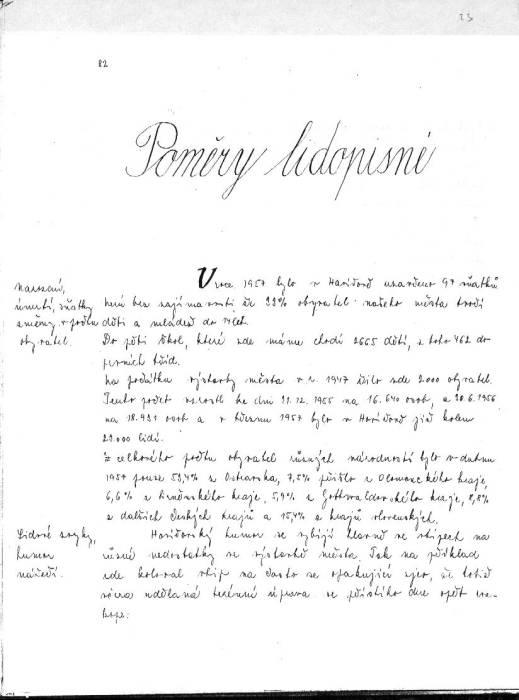 23
82
Poměry lidopisné
Narození,
úmrtí, sňatky
změny v počtu
obyvatel.
V roce 1957 bylo v Havířově uzavřeno 97 sňatků
není bez zajímavosti že 33% obyvatel našeho města tvoří
děti a mládež do 14 let.
Do pěti škol, které zde máme chodí 2665 dětí, z toho 462 do
prvních tříd.
Na počátku výstavby města v r. 1947 žilo zde 2000 obyvatel.
Tento počet vzrostl ke dni 31.12.1955 na 16.640 osob, a 30.6.1956
na 18.491 osob a v březnu 1957 bylo v Havířově již kolem
23.000 lidí.
Z celkového počtu obyvatel různých národností bylo v dubnu
1957 pouze 53,4% z Ostravska, 7,5% přišlo z Olomouckého kraje,
6,6% z Brněnského kraje, 5,9% z Gottwaldovského kraje, 8,8%
z dalších českých krajů a 15,4% z krajů slovenských.
Lidové zvyky,
humor
nářečí.
Havířovský humor se vybíjí hlavně ve vtipech na
různé nedostatky ve výstavbě města. Tak na příklad
zde koloval vtip na často se opakující zjev, že totiž
včera udělaná terénní úprava se příštího dne opět roz-
kope.